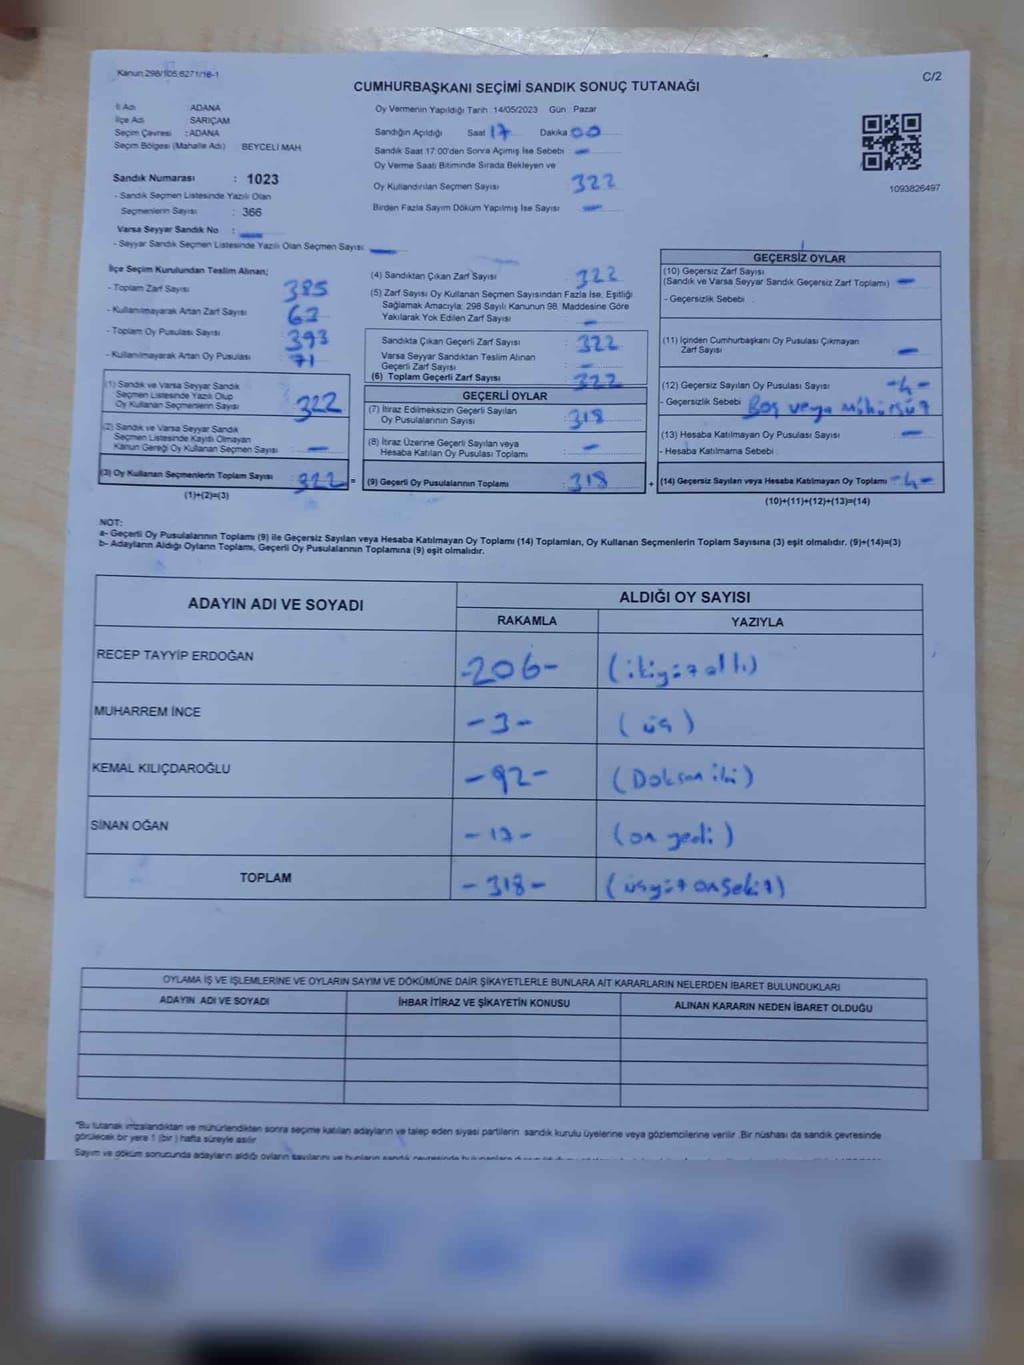 Kanun:298/105;6271/16-1
C/2
CUMHURBAŞKANI SEÇİMİ SANDIK SONUÇ TUTANAĞI
İl Adı : ADANA
İlçe Adı : SARIÇAM
Seçim Çevresi : ADANA
Seçim Bölgesi (Mahalle Adı) BEYCELİ MAH
Sandık Numarası : 1023
- Sandık Seçmen Listesinde Yazılı Olan
Seçmenlerin Sayısı : 366
Varsa Seyyar Sandık No : -
- Seyyar Sandık Seçmen Listesinde Yazılı Olan Seçmen Sayısı -
Oy Vermenin Yapıldığı Tarih :14/05/2023 Gün : Pazar
Sandığın Açıldığı Saat 17 Dakika 00
Sandık Saat 17:00'den Sonra Açılmış İse Sebebi : -
Oy Verme Saati Bitiminde Sırada Bekleyen ve
Oy Kullandırılan Seçmen Sayısı 322
Birden Fazla Sayım Döküm Yapılmış İse Sayısı : -
1093826497
İlçe Seçim Kurulundan Teslim Alınan;
- Toplam Zarf Sayısı : 385
- Kullanılmayarak Artan Zarf Sayısı : 63
- Toplam Oy Pusulası Sayısı : 393
- Kullanılmayarak Artan Oy Pusulası : 71
(1) Sandık ve Varsa Seyyar Sandık
Seçmen Listesinde Yazılı Olup
Oy Kullanan Seçmenlerin Sayısı : 322
(2) Sandık ve Varsa Seyyar Sandık
Seçmen Listesinde Kayıtlı Olmayan
Kanun Gereği Oy Kullanan Seçmen Sayısı : -
(3) Oy Kullanan Seçmenlerin Toplam Sayısı : 322 =
(1)+(2)=(3)
(4) Sandıktan Çıkan Zarf Sayısı : 322
(5) Zarf Sayısı Oy Kullanan Seçmen Sayısından Fazla İse, Eşitliği
Sağlamak Amacıyla; 298 Sayılı Kanunun 98. Maddesine Göre
Yakılarak Yok Edilen Zarf Sayısı : -
Sandıkta Çıkan Geçerli Zarf Sayısı : 322
Varsa Seyyar Sandıktan Teslim Alınan
Geçerli Zarf Sayısı : -
(6) Toplam Geçerli Zarf Sayısı : 322
GEÇERLİ OYLAR
(7) İtiraz Edilmeksizin Geçerli Sayılan
Oy Pusulalarının Sayısı : 318
(8) İtiraz Üzerine Geçerli Sayılan veya
Hesaba Katılan Oy Pusulası Toplamı : -
(9) Geçerli Oy Pusulalarının Toplamı : 318 +
GEÇERSİZ OYLAR
(10) Geçersiz Zarf Sayısı
(Sandık ve Varsa Seyyar Sandık Geçersiz Zarf Toplamı) : -
- Geçersizlik Sebebi :
(11) İçinden Cumhurbaşkanı Oy Pusulası Çıkmayan
Zarf Sayısı : -
(12) Geçersiz Sayılan Oy Pusulası Sayısı : -4-
- Geçersizlik Sebebi : Boş veya mühürsüz
(13) Hesaba Katılmayan Oy Pusulası Sayısı : -
- Hesaba Katılmama Sebebi :
(14) Geçersiz Sayılan veya Hesaba Katılmayan Oy Toplamı : -4-
(10)+(11)+(12)+(13)=(14)
NOT:
a- Geçerli Oy Pusulalarının Toplamı (9) ile Geçersiz Sayılan veya Hesaba Katılmayan Oy Toplamı (14) Toplamları, Oy Kullanan Seçmenlerin Toplam Sayısına (3) eşit olmalıdır. (9)+(14)=(3)
b- Adayların Aldığı Oyların Toplamı, Geçerli Oy Pusulalarının Toplamına (9) eşit olmalıdır.
ADAYIN ADI VE SOYADI ALDIĞI OY SAYISI
RAKAMLA YAZIYLA
RECEP TAYYİP ERDOĞAN -206- (ikiyüz altı)
MUHARREM İNCE -3- (üç)
KEMAL KILIÇDAROĞLU -92- (Doksan iki)
SİNAN OĞAN -17- (on yedi)
TOPLAM -318- (üçyüz onsekiz)
OYLAMA İŞ VE İŞLEMLERİNE VE OYLARIN SAYIM VE DÖKÜMÜNE DAİR ŞİKAYETLERLE BUNLARA AİT KARARLARIN NELERDEN İBARET BULUNDUKLARI
ADAYIN ADI VE SOYADI İHBAR İTİRAZ VE ŞİKAYETİN KONUSU ALINAN KARARIN NEDEN İBARET OLDUĞU
*Bu tutanak imzalandıktan ve mühürlendikten sonra seçime katılan adayların ve talep eden siyasi partilerin sandık kurulu üyelerine veya gözlemcilerine verilir .Bir nüshası da sandık çevresinde
görülecek bir yere 1 (bir ) hafta süreyle asılır
Sayım ve döküm sonucunda adayların aldığı oyların sayılarını ve bunların sandık çevresinde